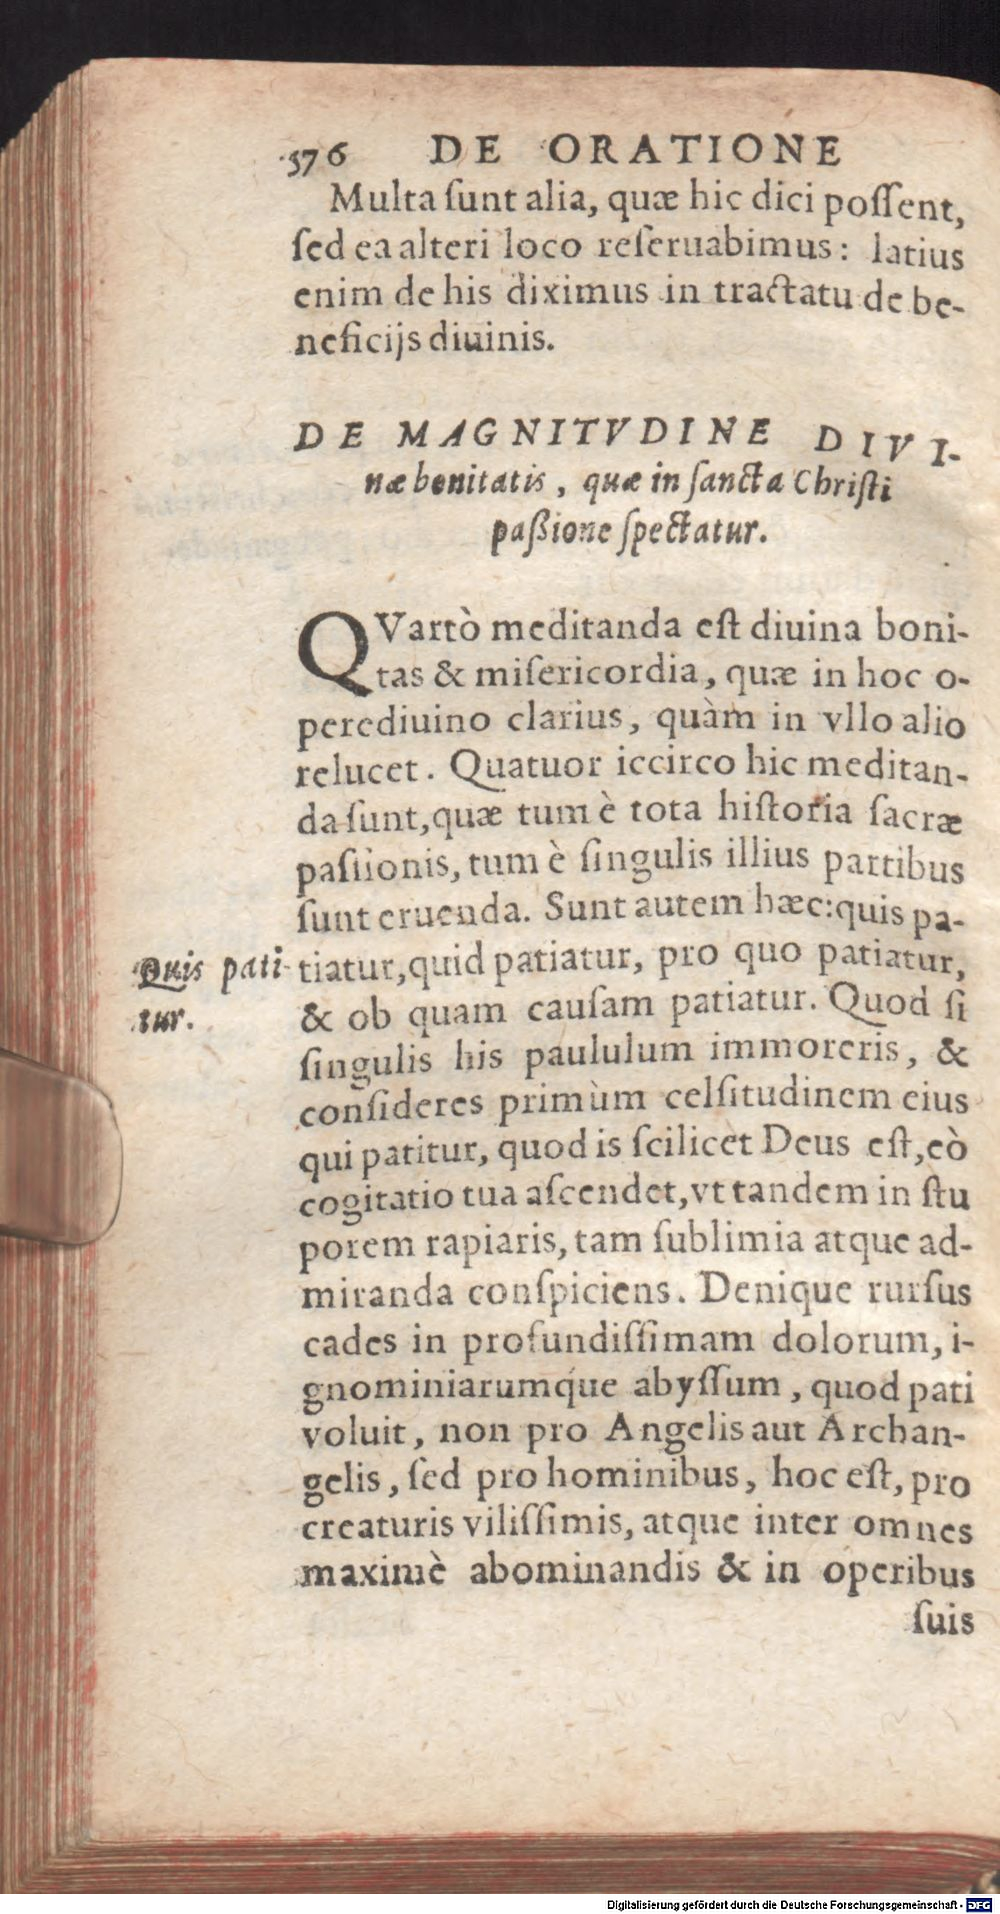 576 DE ORATIONE
Multa ſunt alia, quæ hic dici poſſent,
ſed ea alteri loco reſeruabimus: latius
enim de his diximus in tractatu de be-
neficijs diuinis.
DE MAGNITVDINE DIVI-
næ bonitatis, quæ in ſancta Chriſti
paßione ſpectatur.
QVartò meditanda eſt diuina boni-
tas & miſericordia, quæ in hoc o-
pere diuino clarius, quàm in vllo alio
relucet. Quatuor iccirco hic meditan-
da ſunt, quæ tum è tota hiſtoria ſacræ
paſsionis, tum è ſingulis illius partibus
ſunt eruenda. Sunt autem hæc: quis pa-
Quis pati-
tur.
tiatur, quid patiatur, pro quo patiatur,
& ob quam cauſam patiatur. Quod ſi
ſingulis his paululum immoreris, &
conſideres primùm celſitudinem eius
qui patitur, quod is ſcilicet Deus eſt, eò
cogitatio tua aſcendet, vt tandem in ſtu
porem rapiaris, tam ſublimia atque ad-
miranda conſpiciens. Denique rurſus
cades in profundiſſimam dolorum, i-
gnominiarumque abyſſum, quod pati
voluit, non pro Angelis aut Archan-
gelis, ſed pro hominibus, hoc eſt, pro
creaturis viliſſimis, atque inter omnes
maximè abominandis & in operibus
ſuis
Digitalisierung gefördert durch die Deutsche Forschungsgemeinschaft - DFG